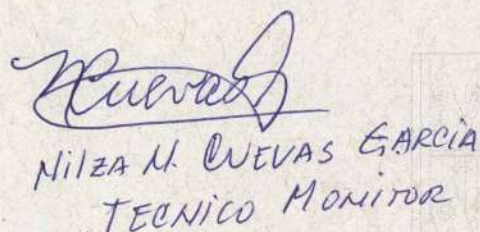 NCuevasG
Nilza N. CUEVAS GARCIA
TECNICO MONITOR